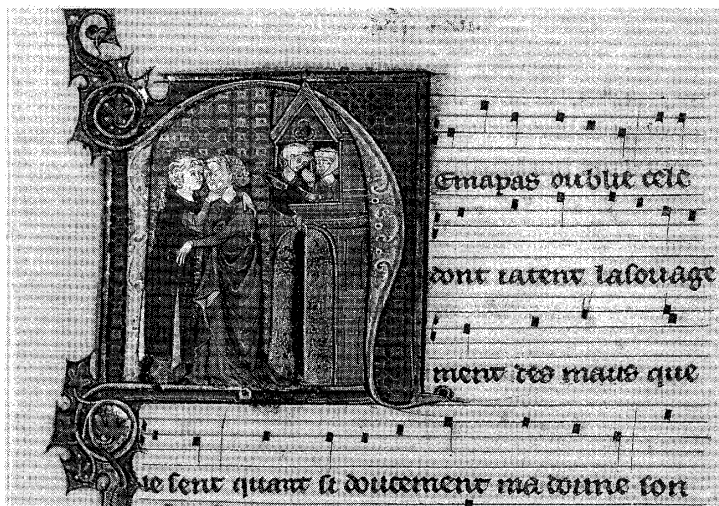 Emapas oublie cele
dont iatent lasouuage
ment des maus que
ie sent quant si doucement ma doune son